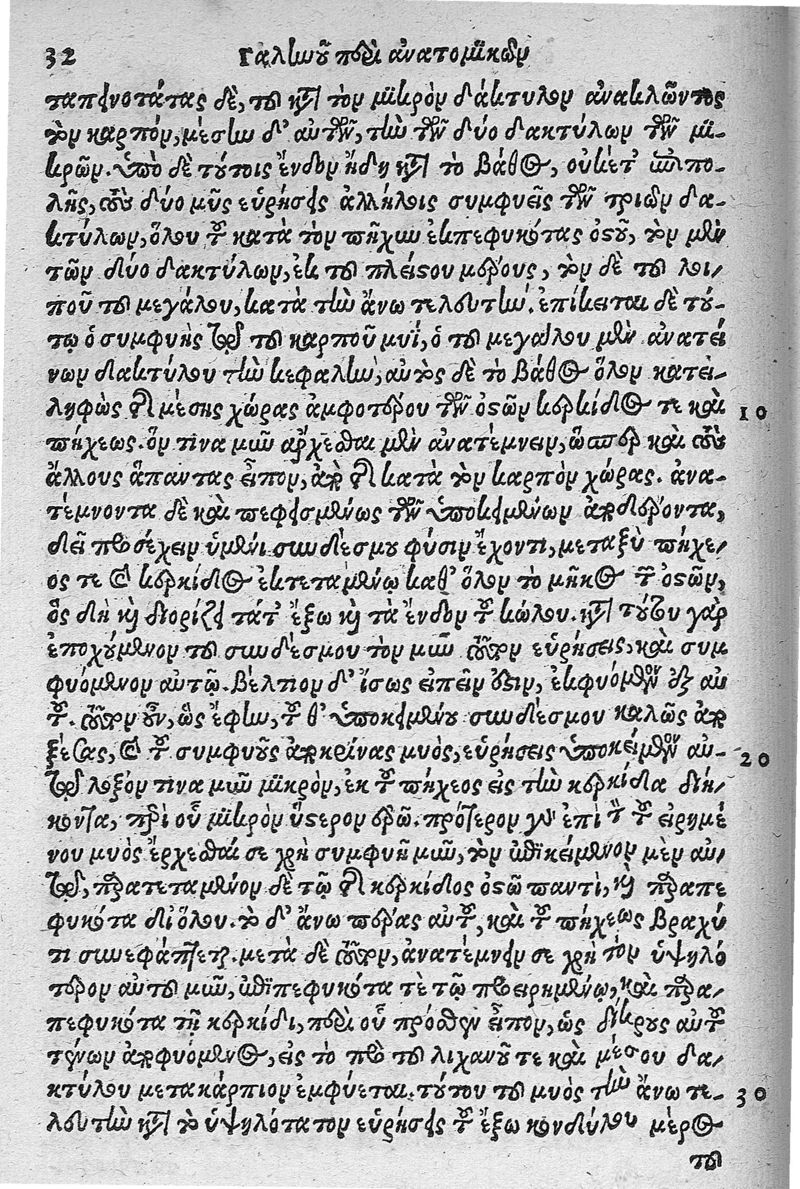 32 Γαληνοῦ περὶ ἀνατομικῶν
ταπεινοτάτας δὲ, τοῦ κατὰ τὸν μικρὸν δάκτυλον ἀνακλῶντος
τὸν καρπόν, μέσην δ' αὐτῶν, τὴν τῶν δύο δακτύλων τῶν μι-
κρῶν. ὑπὸ δὲ τούτοις ἔνδον ἤδη κατὰ τὸ βάθος, οὐκέτ' ἐπιπο-
λῆς, τοὺς δύο μῦς εὑρήσεις ἀλλήλοις συμφυεῖς τῶν τριῶν δα-
κτύλων, ὅλου τοῦ κατὰ τὸν πῆχυν ἐκπεφυκότας ὀστοῦ, τὸν μὲν
τῶν δύο δακτύλων, ἐκ τοῦ πλείστου μέρους, τὸν δὲ τοῦ λοι-
ποῦ τοῦ μεγάλου, κατὰ τὴν ἄνω τελευτήν. ἐπίκειται δὲ τού-
τῳ ὁ συμφυὴς αὐτοῦ τοῦ καρποῦ μυΐ, ὁ τοῦ μεγάλου μὲν ἀνατεί
νων δακτύλου τὴν κεφαλήν, αὐτὸς δὲ τὸ βάθος ὅλον κατει-
ληφὼς τῆς μέσης χώρας ἀμφοτέρου τῶν ὀστῶν κερκίδος τε καὶ 10
πήχεως. ὅν τινα μῦν ἄρχεσθαι μὲν ἀνατέμνειν, ὥσπερ καὶ τοὺς
ἄλλους ἅπαντας εἶπον, ἀπὸ τῆς κατὰ τὸν καρπὸν χώρας. ἀνα-
τέμνοντα δὲ καὶ πεφεισμένως τῶν ὑποκειμένων ἀποδέροντα,
δεῖ προσέχειν ὑμένι συνδέσμου φύσιν ἔχοντι, μεταξὺ πήχε-
ος τε καὶ κερκίδος ἐκτεταμένῳ καθ' ὅλον τὸ μῆκος τῶν ὀστῶν,
ὃς δὴ καὶ διορίζει τάτ' ἔξω καὶ τὰ ἔνδον τοῦ κώλου. κατὰ τούτου γὰρ
ἐποχούμενον τοῦ συνδέσμου τὸν μῦν τοῦτον εὑρήσεις, καὶ συμ
φυόμενον αὐτῷ. βέλτιον δ' ἴσως εἰπεῖν ἐστιν, ἐκφυόμενον ἐξ αὐ
τοῦ. τοῦτον οὖν, ὡς ἔφην, τοῦ θ' ὑποκειμένου συνδέσμου καλῶς ἀπο
ξέσας, καὶ τοῦ συμφυοῦς ἀποκρίνας μυός, εὑρήσεις ὑποκείμενον αὐ- 20
τοῦ λοξόν τινα μῦν μικρὸν, ἐκ τοῦ πήχεος εἰς τὴν κερκίδα διή-
κοντα, περὶ οὗ μικρὸν ὕστερον ἐρῶ. πρότερον γὰρ ἐπὶ τὸν τοῦ εἰρημέ
νου μυὸς ἔρχεσθαί σε χρὴ συμφυῆ μῦν, τὸν ἐπικείμενον μὲν αὐ-
τοῦ, παρατεταμένον δὲ τῷ τῆς κερκίδος ὀστῷ παντὶ, καὶ παραπε
φυκότα δι' ὅλου. τὸ δ' ἄνω πέρας αὐτοῦ, καὶ τοῦ πήχεως βραχύ
τι συνεφάπτεται. μετὰ δὲ τοῦτον, ἀνατέμνειν σε χρὴ τὸν ὑψηλό
τερον αὐτοῦ μῦν, ἐπιπεφυκότα τὲ τῷ προειρημένῳ, καὶ παρα-
πεφυκότα τῇ κερκίδι, περὶ οὗ πρόσθεν εἶπον, ὡς δίκρους αὐτοῦ
τένων ἀποφυόμενος, εἰς τὸ πρὸ τοῦ λιχανοῦ τε καὶ μέσου δα-
κτύλου μετακάρπιον ἐμφύεται. τούτου τοῦ μυὸς τὴν ἄνω τε- 30
λευτὴν κατὰ τὸ ὑψηλότατον εὑρήσεις τοῦ ἔξω κονδύλου μέρος
τοῦ